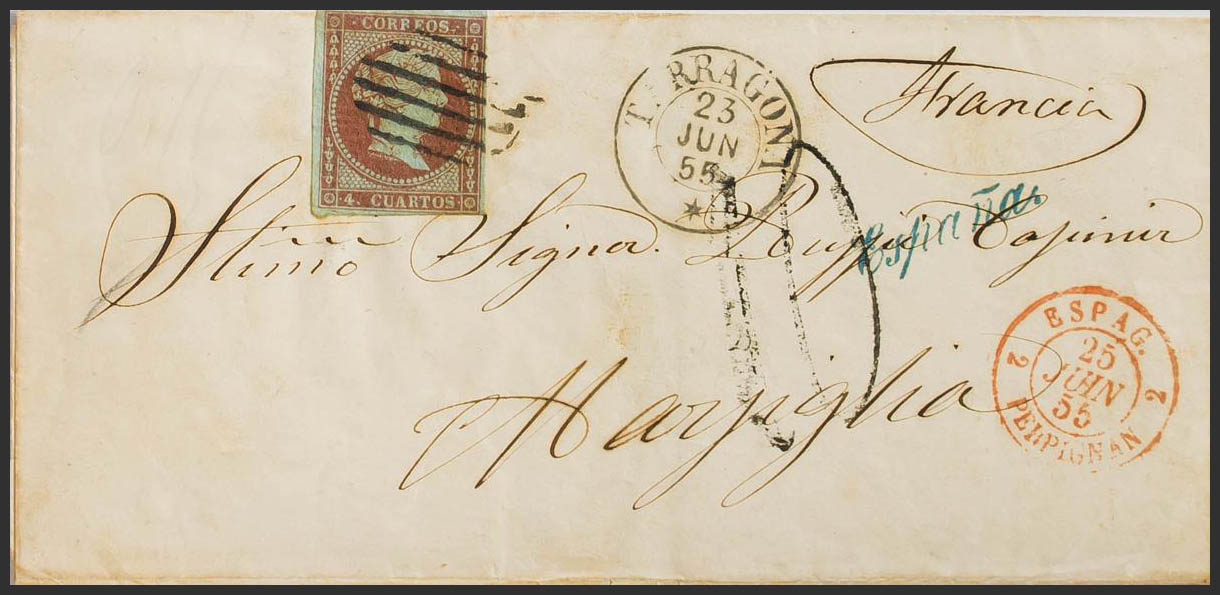 CORREOS.
4. CUARTOS.
TARRAGONA
23
JUN
55
Francia
España.
Stimo Signor. Casimir
Marsiglia
ESPAG.
25
JUIN
55
2 2
PERPIGNAN
10